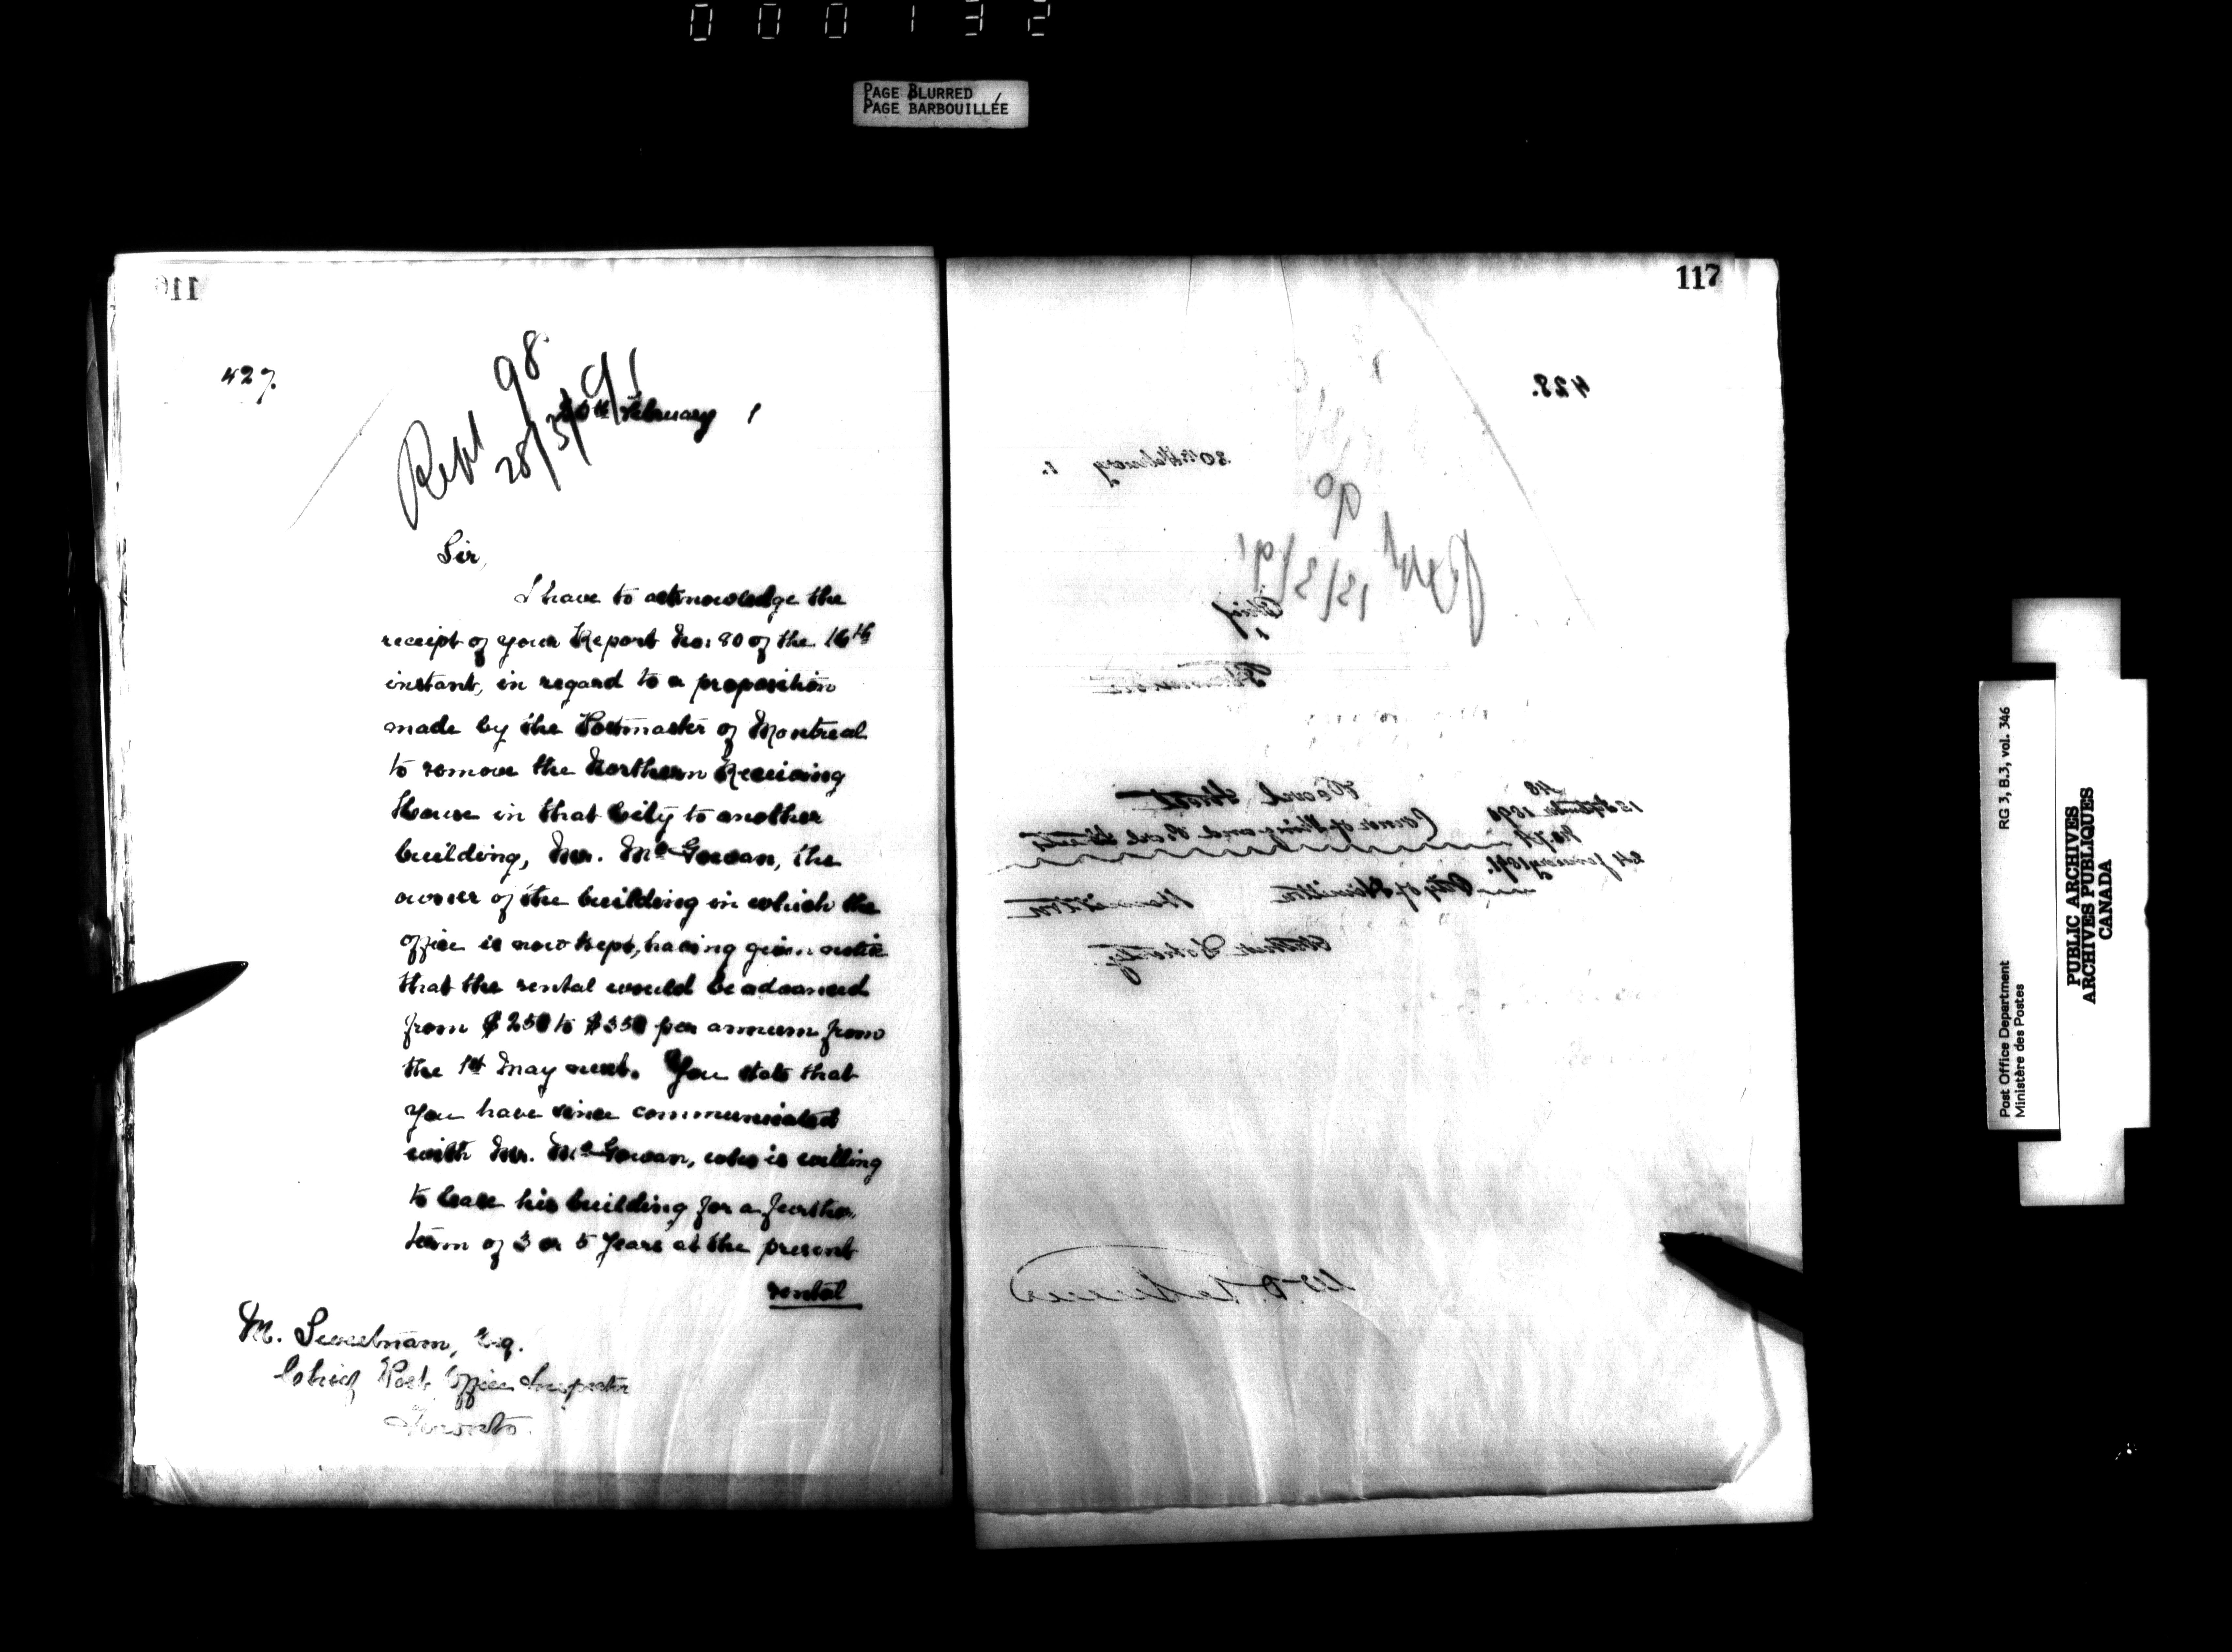 000132
PAGE BLURRED
PAGE BARBOUILLÉE
116
427.
Rept 98
28/3/91
20th February 1
Sir,
I have to acknowledge the
receipt of your Report No: 80 of the 16th
instant, in regard to a proposition
made by the Postmaster of Montreal
to remove the Northern Receiving
House in that City to another
building, Mr. McGowan, the
owner of the building in which the
office is now kept, having given notice
that the rental would be advanced
from $250 to $350 per annum from
the 1st May next. You state that
you have since communicated
with Mr. McGowan, who is willing
to lease his building for a further
term of 3 or 5 years at the present
rental
M. Sweetnam, Esq.
Chief Post Office Inspector
Toronto.
117
428.
20th February 1.
Rept 90
13/3/91
Chief
48
Pearl Street
1890
Corner of King and Pearl Streets
24 January 1891.
City of Hamilton Hamilton
RG 3, B.3, vol. 346
Post Office Department
Ministère des Postes
PUBLIC ARCHIVES
ARCHIVES PUBLIQUES
CANADA